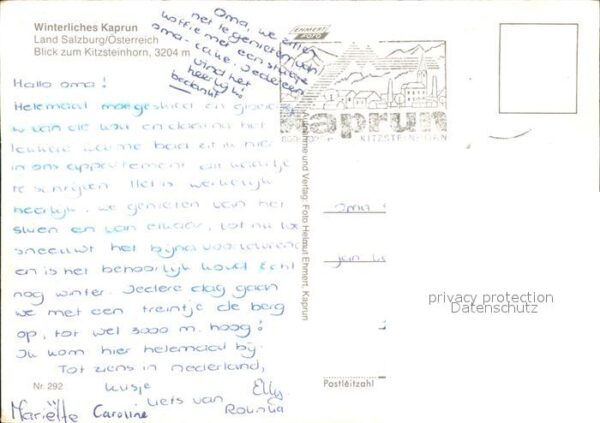 Winterliches Kaprun
Land Salzburg/Österreich
Blick zum Kitzsteinhorn, 3204 m
Oma, we zitten
net te genieten van
koffie met een stukje
oma-cake. Iedereen
vind het
heerlijk!
bedankt
Hallo oma!
Helemaal moegeskied en
van de kou en
leukere warme bad zit ik hier
in ons appartement dit kaartje
te schrijven Het is werkelijk
heerlijk, we genieten van het
skiën en van elkaar, tot nu toe
sneeuwt het bijna voortdurend
en is het behoorlijk koud echt
nog winter. Iedere dag gaan
we met een treintje de berg
op, tot wel 3000 m. hoog!
Ik kom hier helemaal bij.
Tot ziens in Nederland,
kusje
liets van
Elly
Mariëtte Caroline
Nr. 292
EHMERT
FOTO
Kaprun
KITZSTEINHORN
Aufnahme und Verlag: Foto Helmut Ehmert, Kaprun
oma
jan
Postleitzahl
privacy protection
Datenschutz